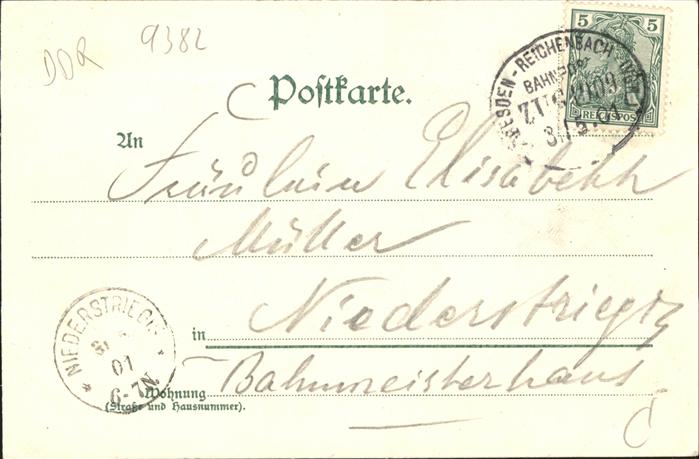 DDR 9382
5 5
REICHSPOST
DRESDEN - REICHENBACH
BAHNPOST
ZUG
3/5.01
Postkarte.
An
Fräulein Elisabeth
Müller
in Niederstriegis
Bahnmeisterhaus
Wohnung
(Straße und Hausnummer).
NIEDERSTRIEGIS
01
6-7N